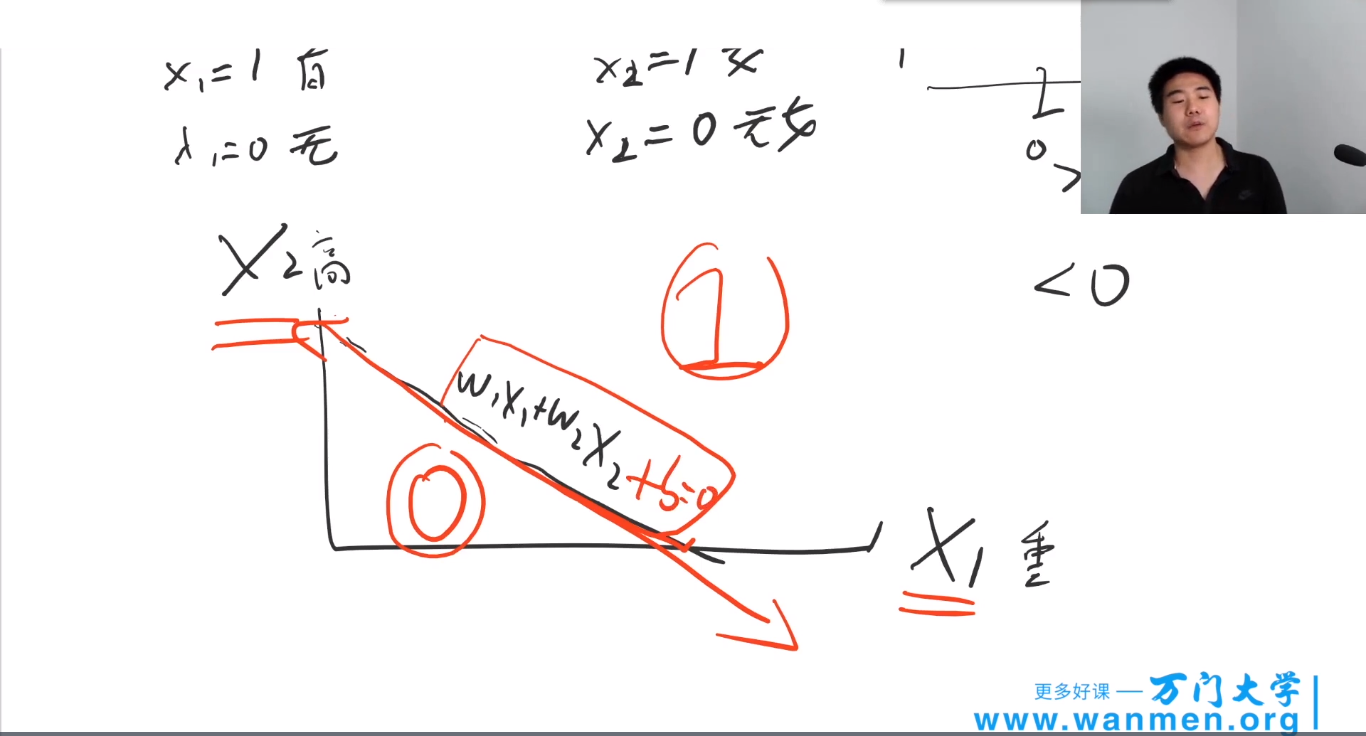 x₁=1 有
x₂=1 女
x₁=0 无
x₂=0 无女
0
>
X₂高
1
<0
w₁x₁+w₂x₂+b=0
0
X₁ 重
更多好课 — 万门大学
www.wanmen.org